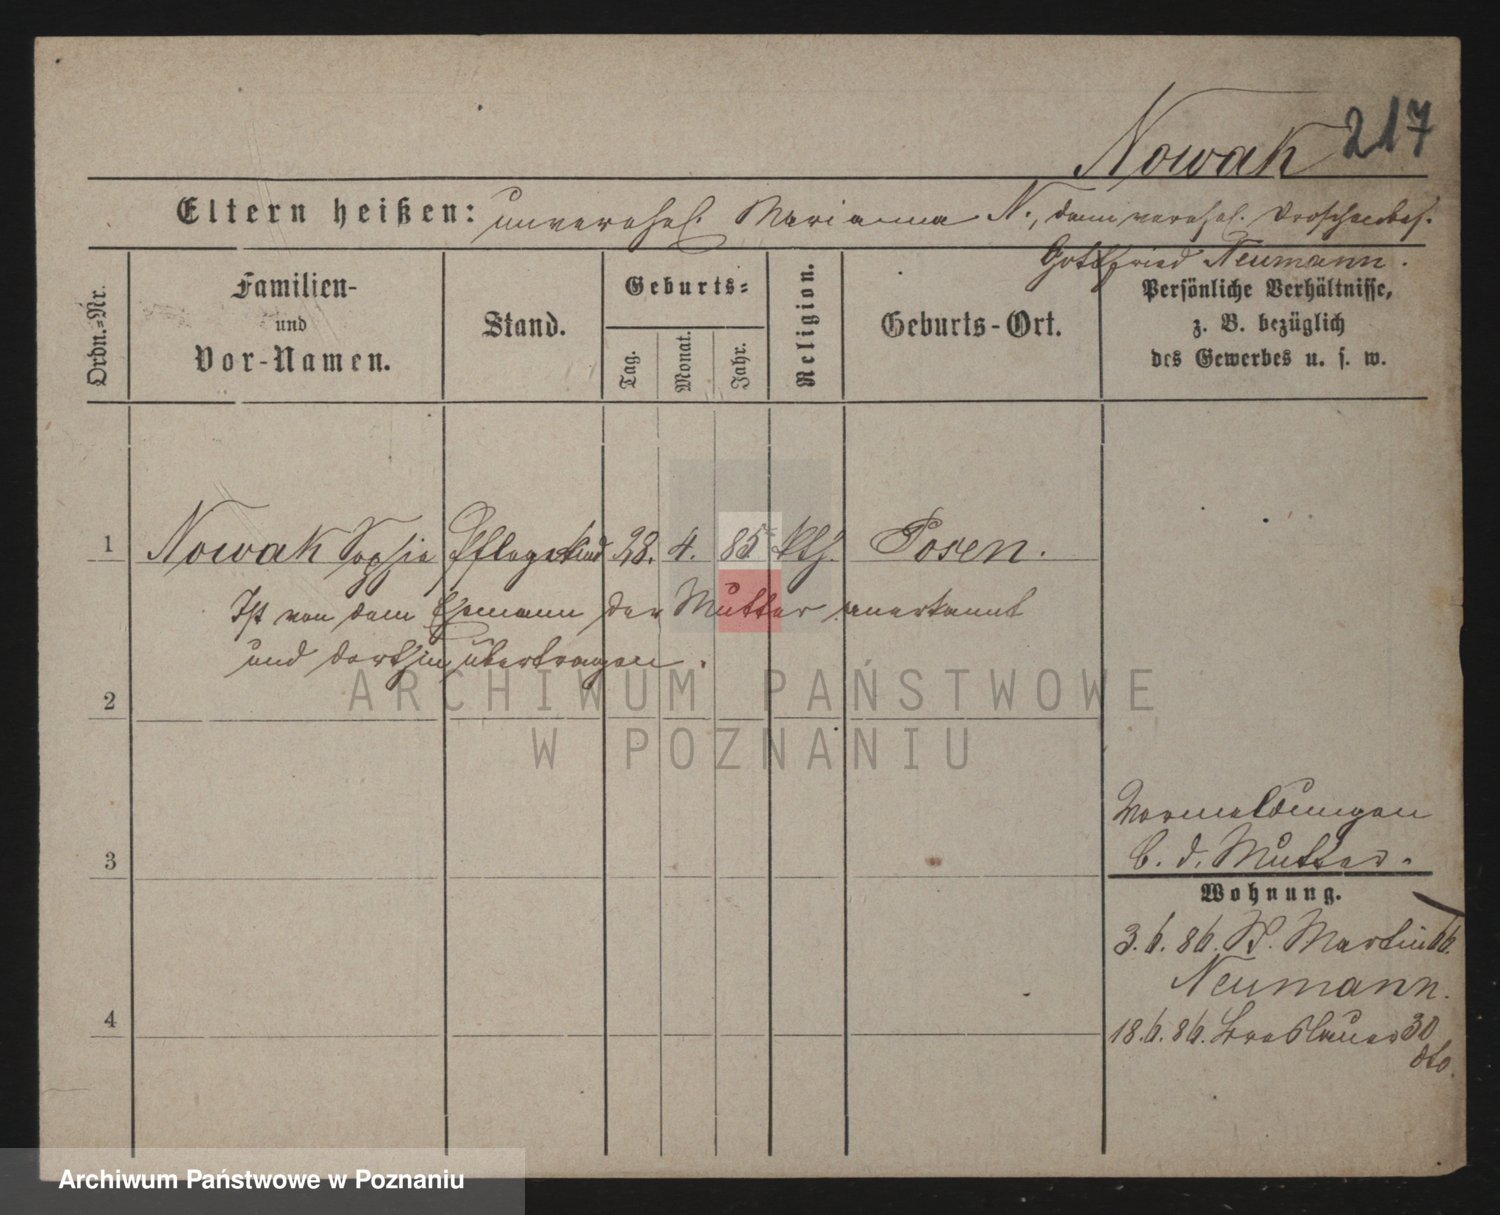 Nowak 217
Eltern heißen: unverehel. Marianna N., dann verehel. Droschkenbes.
Gottfried Neumann.
Ordn.-Nr.
Familien-
und
Vor-Namen.
Stand.
Geburts-
Tag.
Monat.
Jahr.
Religion.
Geburts-Ort.
Persönliche Verhältnisse,
z. B. bezüglich
des Gewerbes u. s. w.
1 Nowak Sophie Pflegekind 28. 4. 85 kth. Posen.
Ist von dem Ehemann der Mutter anerkannt
und dorthin übertragen.
ARCHIWUM PAŃSTWOWE
W POZNANIU
2
3
4
Vormeldungen
b. d. Mutter.
Wohnung.
3.6.86. St. Martin 66.
Neumann.
18.6.86. Breslauer 30
dto.
Archiwum Państwowe w Poznaniu